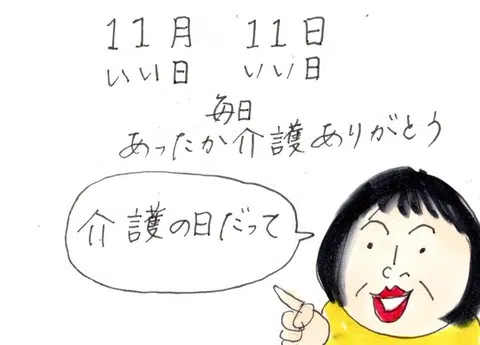 11月 11日
いい日 いい日
毎日
あったか介護ありがとう
介護の日だって